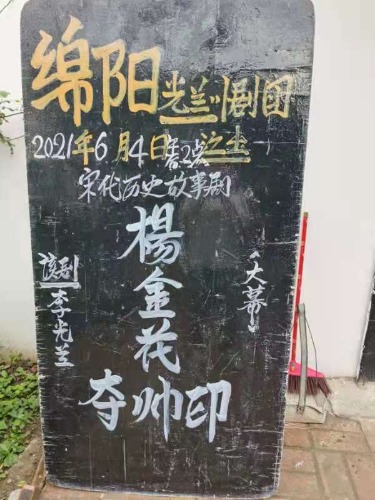 绵阳光兰川剧团
2021年6月4日
宋代历史故事剧
楊金花
夺帅印
"大幕"
李光兰